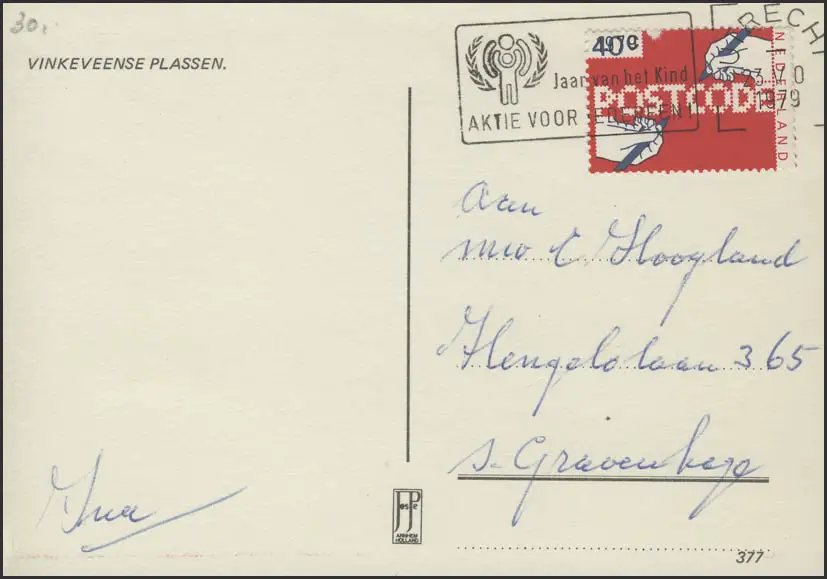 30,-
VINKEVEENSE PLASSEN.
1979
Jaar van het Kind
AKTIE VOOR IEDEREEN!
40c
POSTCODE
NEDERLAND
RECHT
1979
Aan
mw C Hoogland
Hengelolaan 365
s-Gravenhage
Ina
JosPe
ARNHEM
HOLLAND
377